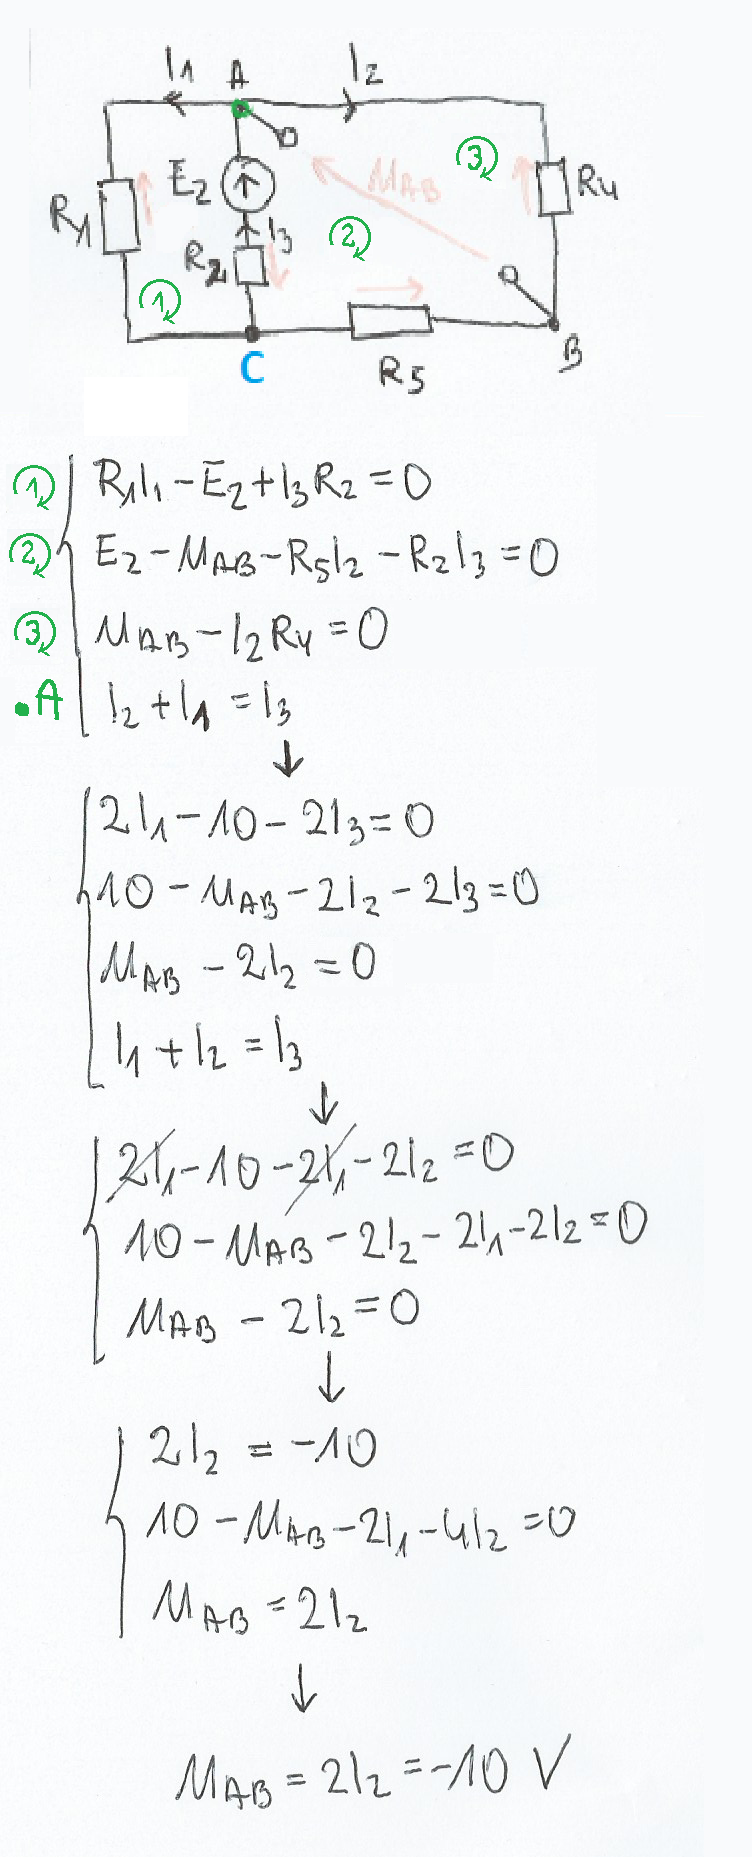 I1 A I2
E2 UAB 3 R4
R1 I3 2
R2
1
C R5 B
1 R1I1 - E2 + I3R2 = 0
2 E2 - UAB - R5I2 - R2I3 = 0
3 UAB - I2R4 = 0
.A I2 + I1 = I3
↓
2I1 - 10 - 2I3 = 0
10 - UAB - 2I2 - 2I3 = 0
UAB - 2I2 = 0
I1 + I2 = I3
↓
2I1 - 10 - 2I1 - 2I2 = 0
10 - UAB - 2I2 - 2I1 - 2I2 = 0
UAB - 2I2 = 0
↓
2I2 = -10
10 - UAB - 2I1 - 4I2 = 0
UAB = 2I2
↓
UAB = 2I2 = -10 V